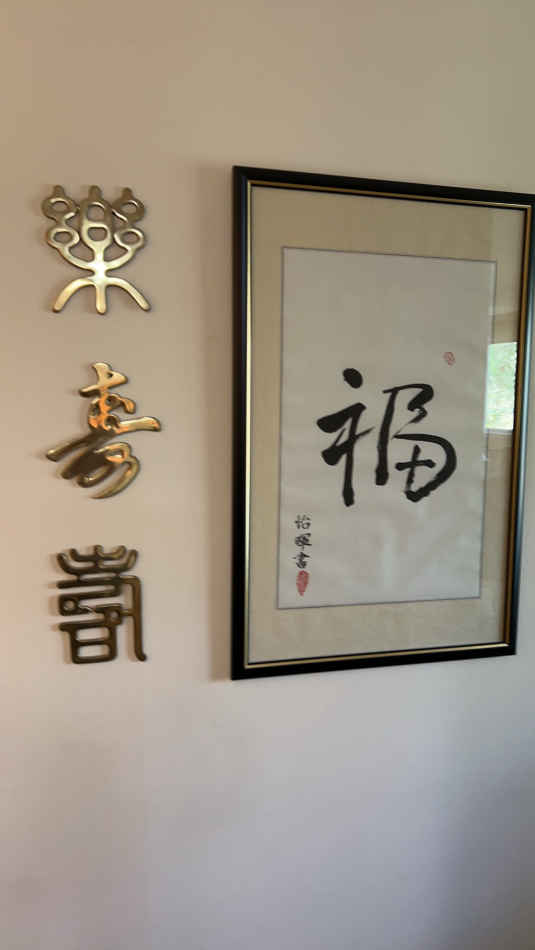 樂
壽
壽
福
怡暉書